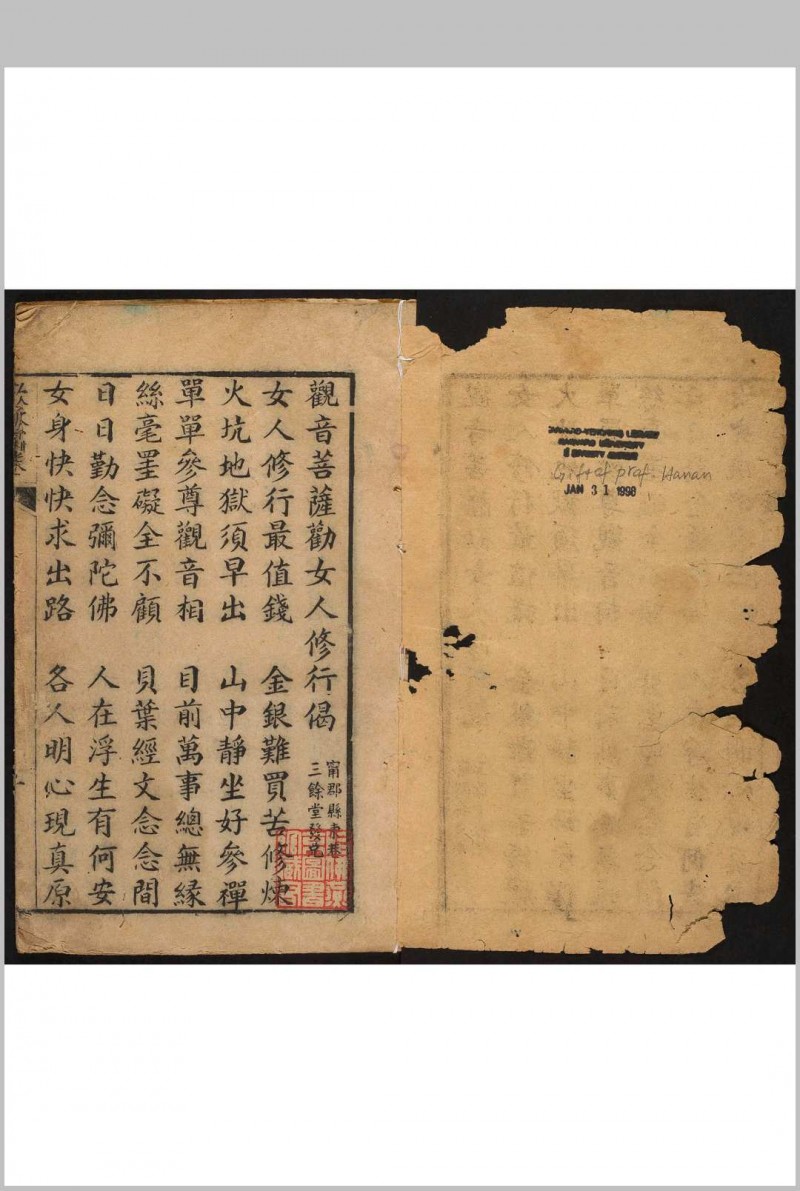 HARVARD-YENCHING LIBRARY
HARVARD UNIVERSITY
Gift of prof. Hanan
JAN 31 1998
觀音菩薩勸女人修行偈
甯郡縣東巷
三餘堂發兌
女人修行最值錢 金銀難買苦修煉
火坑地獄須早出 山中靜坐好參禪
單單參尊觀音相 目前萬事總無緣
絲毫罣礙全不顧 貝葉經文念念間
日日勤念彌陀佛 人在浮生有何安
女身快快求出路 各人明心現真原